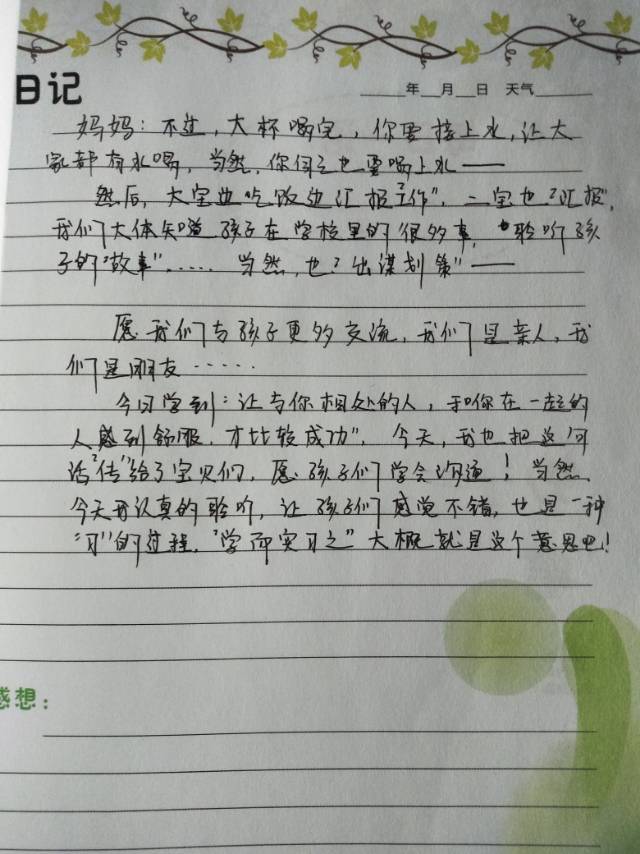 日记
年 月 日 天气
妈妈：不过，大杯喝完，你要接上水，让大
家都有水喝，当然，你自己也要喝上水——
然后，大宝边吃饭边汇报工作”，二宝也“汇报”，
我们大体知道孩子在学校里的很多事，也聆听孩
子的“故事”…… 当然，也“出谋划策”——
愿我们与孩子更多交流，我们是亲人，我
们是朋友……
今日学到：让与你相处的人，和你在一起的
人感到舒服，才比较成功”。今天，我也把这句
话“传”给了宝贝们，愿孩子们学会沟通！当然，
今天我认真的聆听，让孩子们感觉不错，也是一种
“习”的过程，“学而实习之”大概就是这个意思吧！
感想：